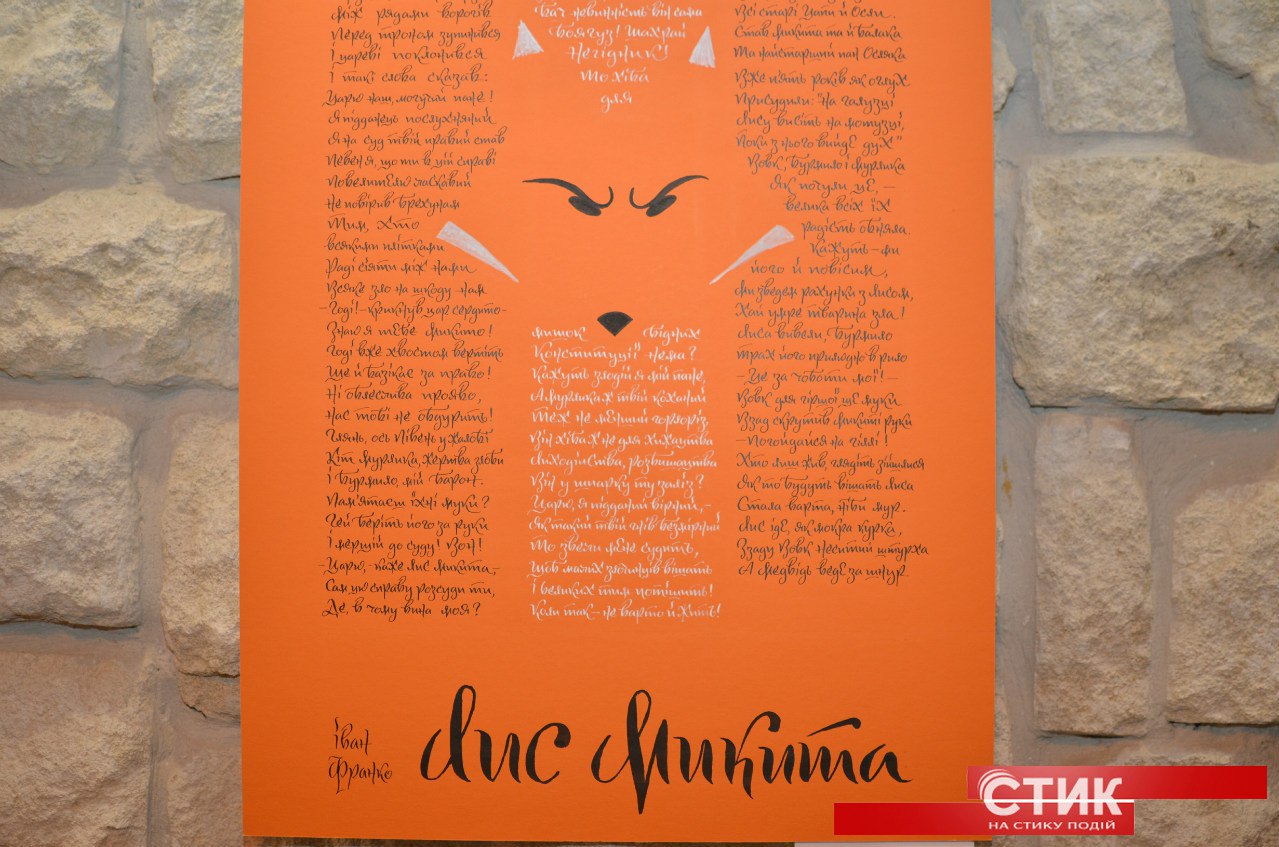 між рядами ворогів.
Перед троном зупинився
І цареві поклонився
І такі слова сказав:
Царю наш, могучий пане!
Я підданець послухняний
Я на суд твій правий став
Певен я, що ти в цій справі
Повелителю ласкавий
Не повірив брехунам
Тим, хто
всякими плітками
Раді сіяти між нами
Всяке зло на шкоду нам.
-Годі!-крикнув цар сердито-
Знаю я тебе Микито!
Годі вже хвостом вертіть
Ще й базікає за право!
Ні облеслива проява,
Нас тобі не обдурить!
Глянь, ось Півень у жалобі
Кіт Мурлика, жертва злоби
І Бурмило, мій барон.
Пам'ятаєш їхні муки?
Гей беріть його за руки
І мерщій до суду! Вон!
-Царю,-каже Лис Микита,-
Сам цю справу розсуди ти,
Де, в чому вина моя?
Бач невинність він сама
Боягуз! Шахрай
Негідник!
То хіба
для
миток бідних
Конституції нема?
Кажуть злодій я мій пане,
А Мурлика ж твій коханий
Теж не менший горлоріз,
Він хіба ж не для хижацтва
Лиходійства, розбишацтва
Ліз у шпарку ту
Царю, я підданий вірний,-
Як такий твій гнів безмірний
То звели мене судить,
Щоб малих злочинців вішать
І великих тим потішить!
Коли так-не варто й жить!
Всі старі Цапи й Осли.
Став Микита та й балака
Та найстарший пан Осляка
Вже п'ять років як оглух
Присудили: "На галузці
Лису висіть на мотузці,
Поки з нього вийде дух"
Вовк, Бурмило і Мурлика
Як почули це,-
велика всіх їх
радість обняла.
Кажуть-ми
його й повісим,
Ми зведем рахунки з Лисом,
Хай умре тварина зла!
Лиса вивели, Бурмило
Трах його прилюдно в рило
-Це за чоботи мої!-
Вовк для гіршої ще муки
Ззад скрутив Микиті руки
-Погойдайся на гіллі!
Хто лиш жив, глядіть зійшлися
Як то будуть вішать Лиса
Стала варта, ніби мур.
Лис іде, як мокра курка,
Ззаду Вовк неситий штурха
А Медвідь веде за шнур.
Іван
Франко
Лис Микита
СТИК
НА СТИКУ ПОДІЙ